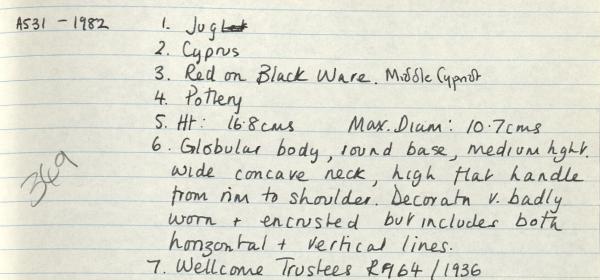 A531 - 1982
1. Jug
2. Cyprus
3. Red on Black Ware. Middle Cypriot
4. Pottery
5. Ht: 16.8cms Max. Diam: 10.7cms
6. Globular body, round base, medium hght.
wide concave neck, high flat handle
from rim to shoulder. Decoratn v. badly
worn + encrusted but includes both
horizontal + vertical lines.
349
7. Wellcome Trustees R964/1936